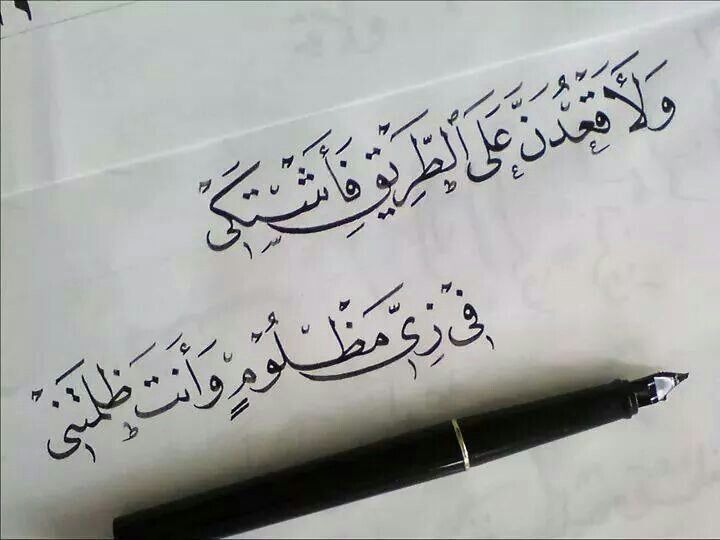 وَلَأَقْعُدَنَّ عَلَى الطَّرِيقِ فَأَشْتَكِي
فِي زِيِّ مَظْلُومٍ وَأَنْتَ ظَلَمْتَنِي